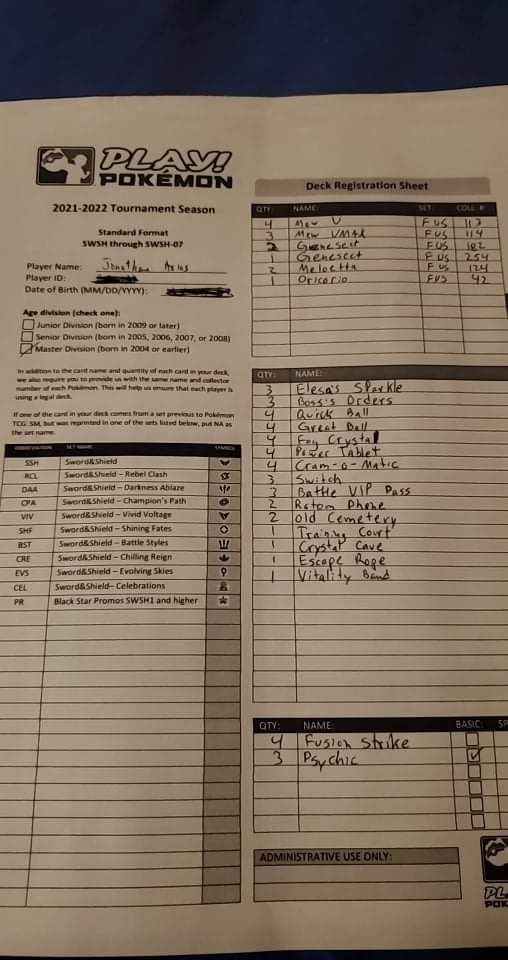 PLAY!
POKÉMON
2021-2022 Tournament Season
Standard Format
SWSH through SWSH-07
Player Name: Jonathan
Player ID:
Date of Birth (MM/DD/YYYY):
Age division (check one):
Junior Division (born in 2009 or later)
Senior Division (born in 2005, 2006, 2007, or 2008)
Master Division (born in 2004 or earlier)
In addition to the card name and quantity of each card in your deck,
we also require you to provide us with the same name and collector
number of each Pokémon. This will help us ensure that each player is
using a legal deck.
If one of the card in your deck comes from a set previous to Pokémon
TCG: SM, but was reprinted in one of the sets listed below, put NA as
the set name.
ABBREVIATION SET NAME SYMBOL
SSH Sword&Shield
RCL Sword&Shield – Rebel Clash
DAA Sword&Shield – Darkness Ablaze
CPA Sword&Shield – Champion's Path
VIV Sword&Shield – Vivid Voltage
SHF Sword&Shield – Shining Fates
BST Sword&Shield – Battle Styles
CRE Sword&Shield – Chilling Reign
EVS Sword&Shield – Evolving Skies
CEL Sword&Shield– Celebrations
PR Black Star Promos SWSH1 and higher
Deck Registration Sheet
QTY: NAME: SET COLL #
4 Mew V FUS 113
3 Mew VMAX FUS 114
2 Genesect FUS 182
1 Genesect FUS 254
2 Meloetta FUS 124
1 Oricorio FUS 42
QTY: NAME:
3 Elesa's Sparkle
3 Boss's Orders
4 Quick Ball
4 Great Ball
4 Fog Crystal
4 Power Tablet
4 Cram-o-Matic
3 Switch
3 Battle VIP Pass
2 Rotom Phone
2 Old Cemetery
1 Training Court
1 Crystal Cave
1 Escape Rope
1 Vitality Band
QTY: NAME: BASIC: SP
4 Fusion Strike
3 Psychic
ADMINISTRATIVE USE ONLY:
PL
POK